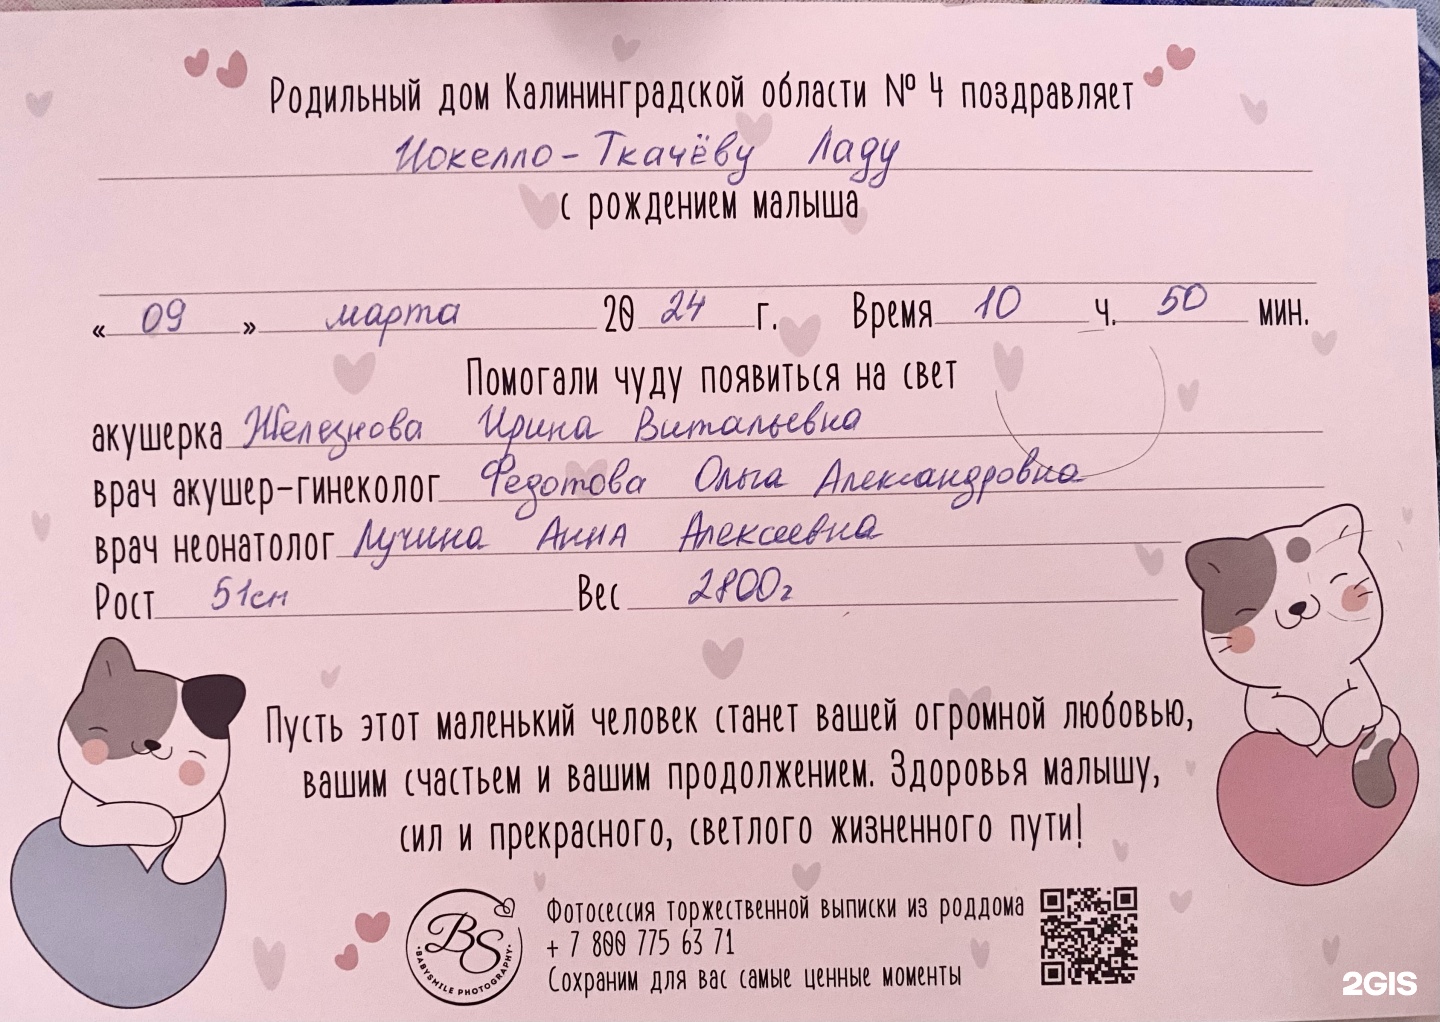 Родильный дом Калининградской области № 4 поздравляет
Иокелло-Ткачёву Ладу
с рождением малыша
« 09 » марта 20 24 г. Время 10 ч. 50 мин.
Помогали чуду появиться на свет
акушерка Железнова Ирина Витальевна
врач акушер-гинеколог Федотова Ольга Александровна
врач неонатолог Лучина Анна Алексеевна
Рост 51см Вес 2800г
Пусть этот маленький человек станет вашей огромной любовью,
вашим счастьем и вашим продолжением. Здоровья малышу,
сил и прекрасного, светлого жизненного пути!
BS
BABYSMILE PHOTOGRAPHY
Фотосессия торжественной выписки из роддома
+ 7 800 775 63 71
Сохраним для вас самые ценные моменты
2GIS